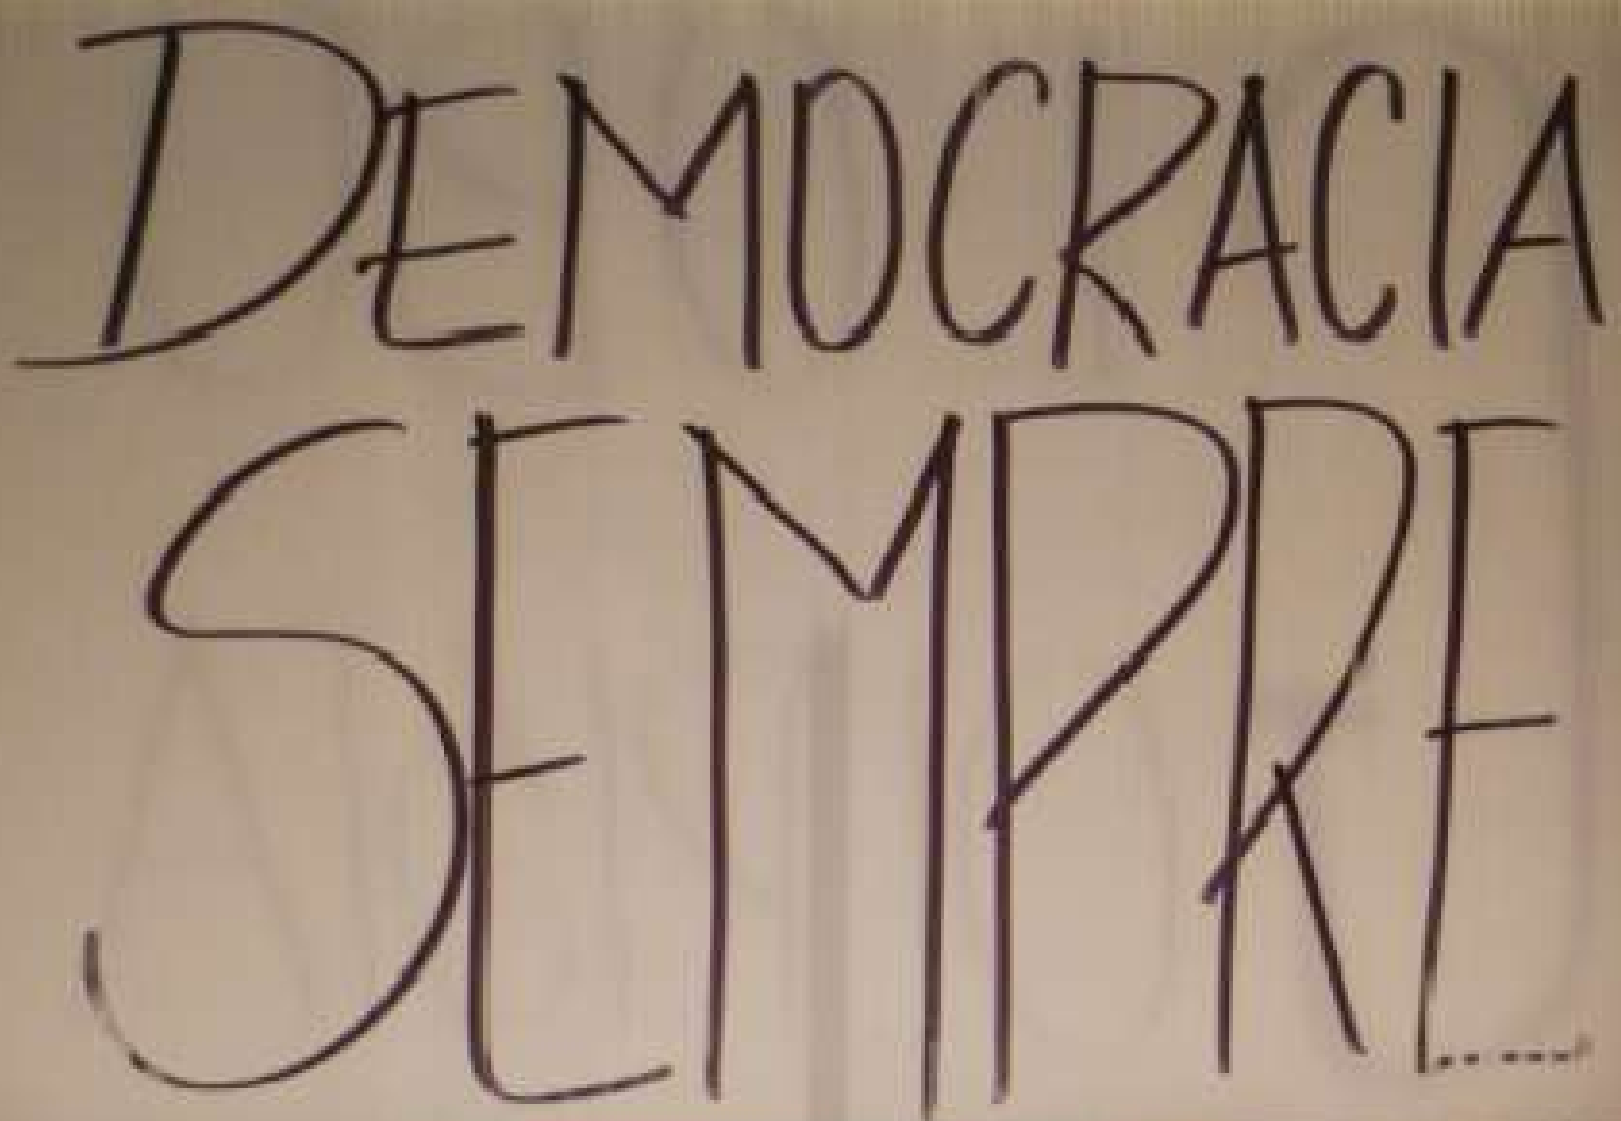 DEMOCRACIA
SEMPRE